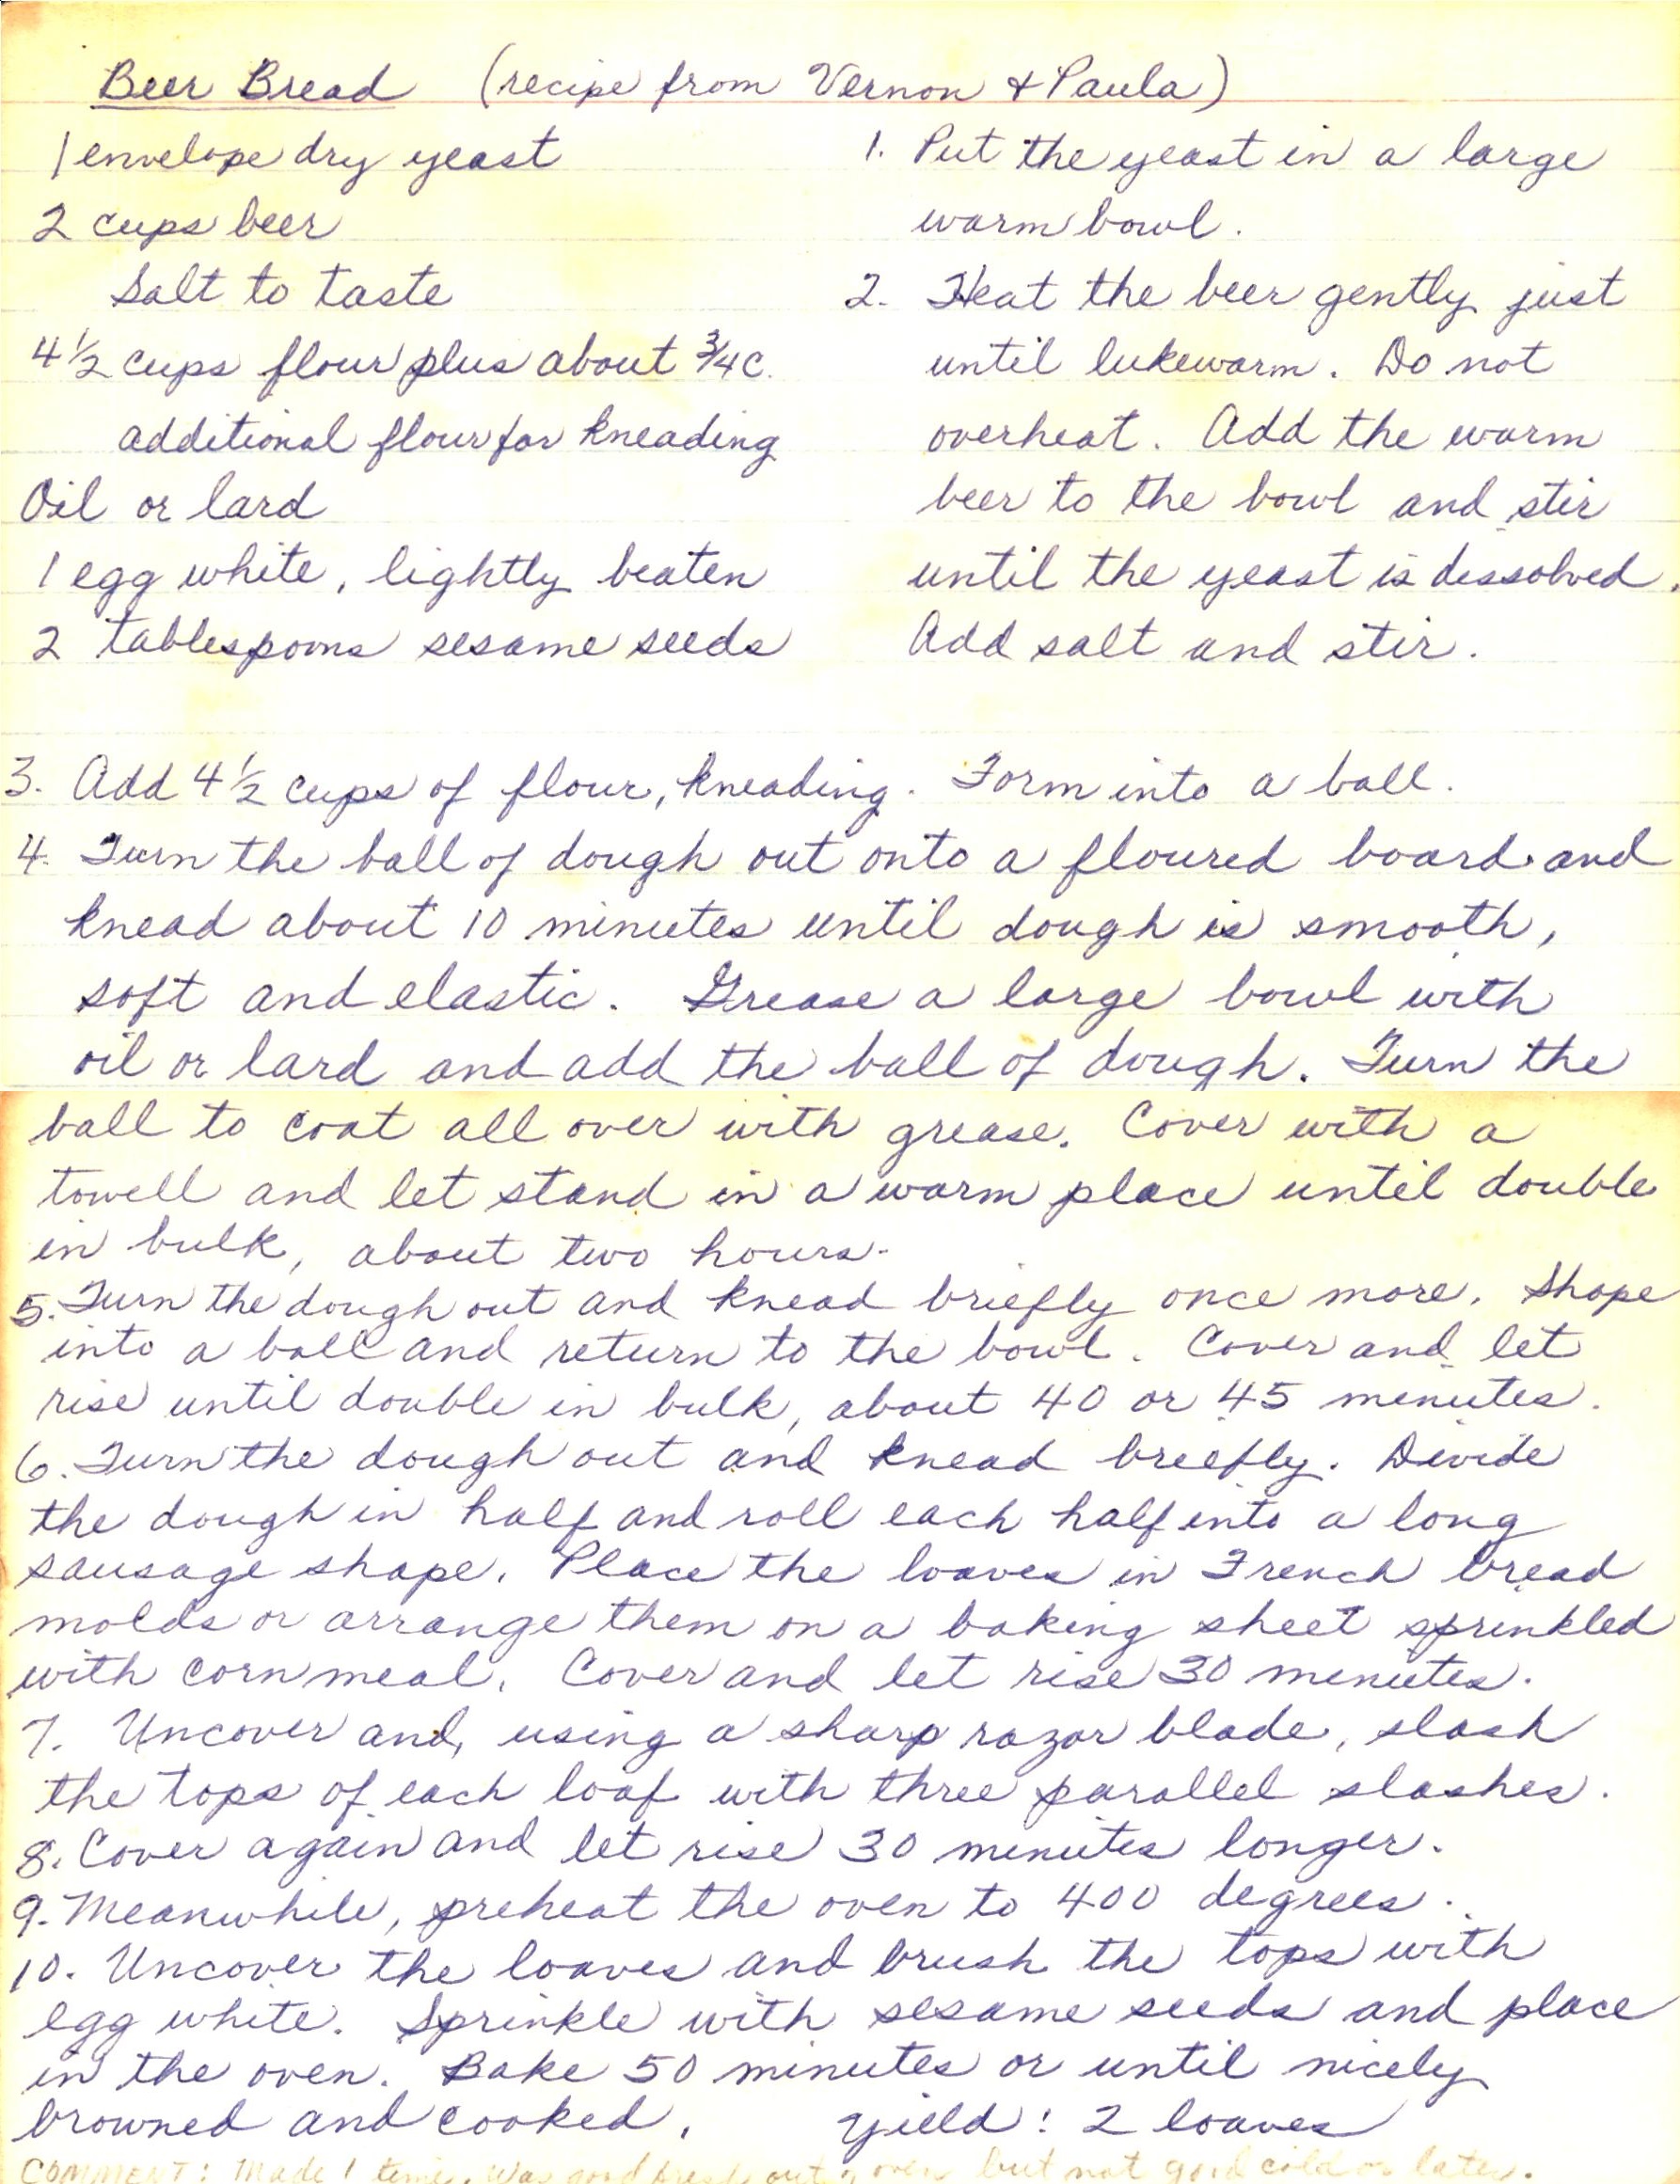 Beer Bread (recipe from Vernon & Paula)
1 envelope dry yeast
2 cups beer
Salt to taste
4 1/2 cups flour plus about 3/4 c.
additional flour for kneading
Oil or lard
1 egg white, lightly beaten
2 tablespoons sesame seeds
1. Put the yeast in a large
warm bowl.
2. Heat the beer gently just
until lukewarm. Do not
overheat. Add the warm
beer to the bowl and stir
until the yeast is dissolved.
Add salt and stir.
3. Add 4 1/2 cups of flour, kneading. Form into a ball.
4. Turn the ball of dough out onto a floured board and
knead about 10 minutes until dough is smooth,
soft and elastic. Grease a large bowl with
oil or lard and add the ball of dough. Turn the
ball to coat all over with grease. Cover with a
towell and let stand in a warm place until double
in bulk, about two hours.
5. Turn the dough out and knead briefly once more. Shape
into a ball and return to the bowl. Cover and let
rise until double in bulk, about 40 or 45 minutes.
6. Turn the dough out and knead briefly. Divide
the dough in half and roll each half into a long
sausage shape. Place the loaves in French bread
molds or arrange them on a baking sheet sprinkled
with cornmeal. Cover and let rise 30 minutes.
7. Uncover and, using a sharp razor blade, slash
the tops of each loaf with three parallel slashes.
8. Cover again and let rise 30 minutes longer.
9. Meanwhile, preheat the oven to 400 degrees.
10. Uncover the loaves and brush the tops with
egg white. Sprinkle with sesame seeds and place
in the oven. Bake 50 minutes or until nicely
browned and cooked. Yield: 2 loaves
COMMENT: Made 1 time. Was good fresh out of oven but not good cold or later.